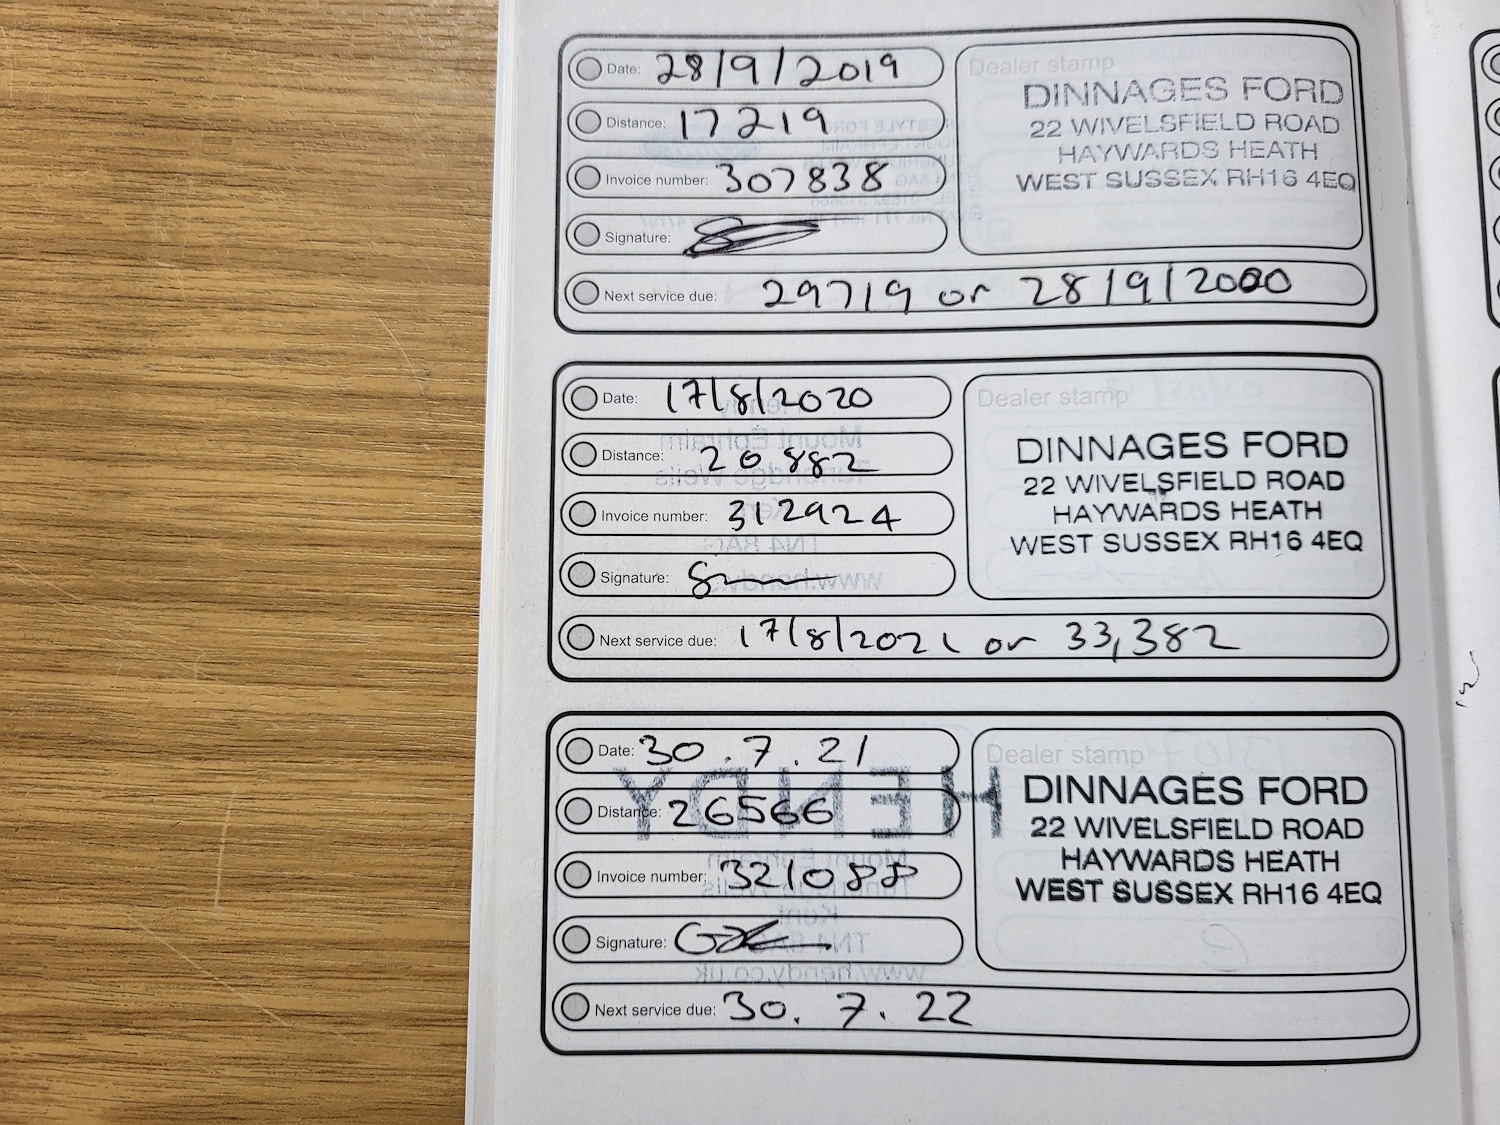 Date: 28/9/2019
Distance: 17219
Invoice number: 307838
Signature:
Next service due: 29719 or 28/9/2020
Dealer stamp
DINNAGES FORD
22 WIVELSFIELD ROAD
HAYWARDS HEATH
WEST SUSSEX RH16 4EQ
Date: 17/8/2020
Distance: 20882
Invoice number: 312924
Signature:
Next service due: 17/8/2021 or 33,382
Dealer stamp
DINNAGES FORD
22 WIVELSFIELD ROAD
HAYWARDS HEATH
WEST SUSSEX RH16 4EQ
Date: 30.7.21
Distance: 26566
Invoice number: 321088
Signature:
Next service due: 30.7.22
Dealer stamp
DINNAGES FORD
22 WIVELSFIELD ROAD
HAYWARDS HEATH
WEST SUSSEX RH16 4EQ
HENDY
Mount Ephraim
Tunbridge Wells
Kent
www.hendy.co.uk